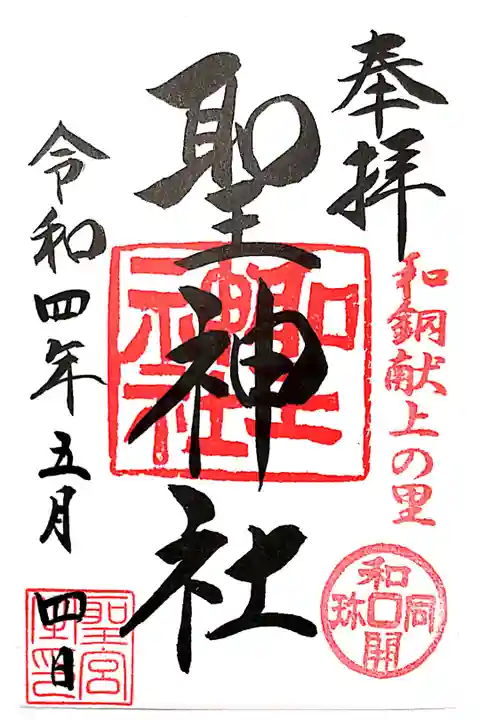 奉拝
和銅献上の里
和同開珎
聖神社
聖神社
令和四年五月四日
聖宮